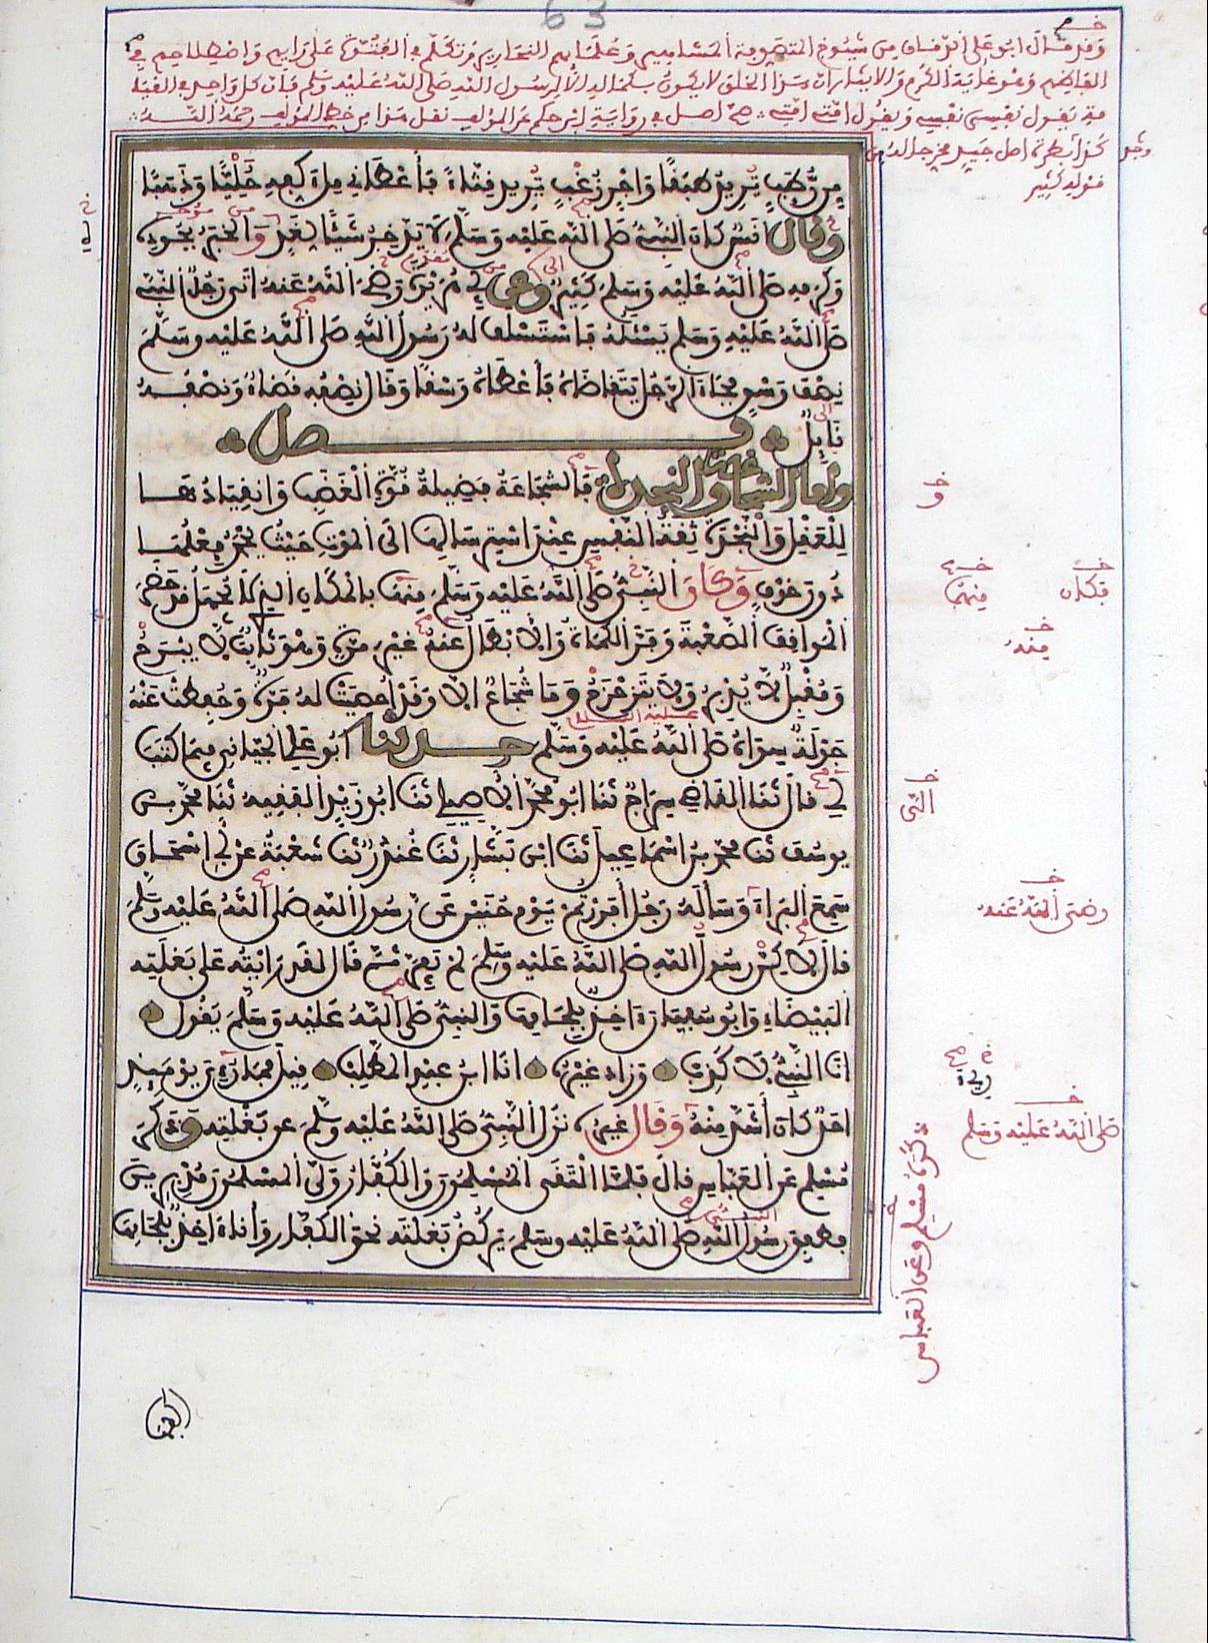 63
وقد قال ابو على الدقاق من شيوخ المتصوفة المشاهير وعلمائهم النحارير وتكلم في الفتوة على رأيهم واصطلاحهم في
الفاظهم وهو غاية الكرم والايثار ان هذا الخلق لا يكون بكماله الا لرسول الله صلى الله عليه وسلم فان كل واحد في القيامة
يقول نفسي نفسي ويقول امتي امتي
من رطب يريد طبقا واجر زغب يريد قثاء فأعطاني ملء كفه حليا وذهبا
وقال انس كان النبي صلى الله عليه وسلم لا يدخر شيئا لغد والخبر بجوده
وكرمه صلى الله عليه وسلم كثير وعن ابي هريرة رضي الله عنه اتى رجل النبي
صلى الله عليه وسلم يسئله فاستسلف له رسول الله صلى الله عليه وسلم
نصف وسق فجاء الرجل يتقاضاه فأعطاه وسقا وقال نصفه قضاء ونصفه
نايل فصل
واما الشجاعة والنجدة فالشجاعة فضيلة قوة الغضب وانقيادها
للعقل والنجدة ثقة النفس عند استرسالها الى الموت حيث يحمد فعلها
دون خوف وكان النبي صلى الله عليه وسلم منهما بالمكان الذي لا يجهل قد حضر
المواقف الصعبة وفر الكماة والابطال عنه غير مرة وهو ثابت لا يبرح
ومقبل لا يدبر ولا يتزحزح وما شجاع الا وقد احصيت له فرة وحفظت عنه
جولة سواه صلى الله عليه وسلم حدثنا ابو على الجياني فيما كتب
لي قال ثنا القاضي سراج ثنا ابو محمد الاصيلي ثنا ابو زيد الفقيه ثنا محمد بن
يوسف ثنا محمد بن اسماعيل ثنا ابن بشار ثنا غندر ثنا شعبة عن ابي اسحاق
سمع البراء وسأله رجل أفررتم يوم حنين عن رسول الله صلى الله عليه وسلم
قال لاكن رسول الله صلى الله عليه وسلم لم يفر ثم قال لقد رايته على بغلته
البيضاء وابو سفيان آخذ بلجامها والنبي صلى الله عليه وسلم يقول
انا النبي لا كذب وزاد غيره انا ابن عبد المطلب قيل فما رءي يومئذ
احد كان أشد منه وقال غيره نزل النبي صلى الله عليه وسلم عن بغلته وذكر
مسلم عن العباس قال فلما التقى المسلمون والكفار ولى المسلمون مدبرين
فطفق رسول الله صلى الله عليه وسلم يركض بغلته نحو الكفار وأنا آخذ بلجامها
فكان
منها
منه
رضى الله عنه
صلى الله عليه وسلم
ذكره مسلم وعن العباس